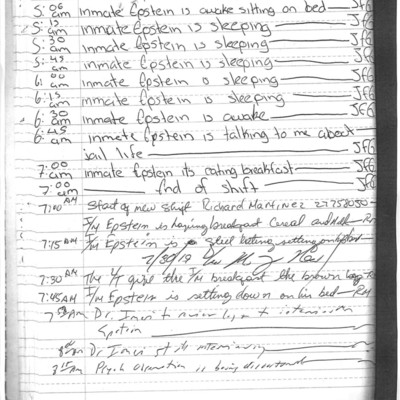 5:06 am Inmate Epstein is awake sitting on bed JFG
5:15 am inmate Epstein is sleeping JFG
5:30 am inmate Epstein is sleeping JFG
5:45 am inmate Epstein is sleeping JFG
6:00 am inmate Epstein is sleeping JFG
6:15 am inmate Epstein is sleeping JFG
6:30 am inmate Epstein is awake JFG
6:45 am inmate Epstein is talking to me about
jail life JFG
7:00 am inmate Epstein its eating breakfast JFG
7:00 am End of shift JFG
7:00 AM Start of new shift Richard Martinez
I/M Epstein is having breakfast Cereal and milk RM
7:15 AM I/M Epstein is
7/30/19
7:30 AM The give the I/M breakfast the brown bag
7:45 AM I/M Epstein is setting down on his bed RM
Dr. to
Epstein
Dr
Psych Observation is being